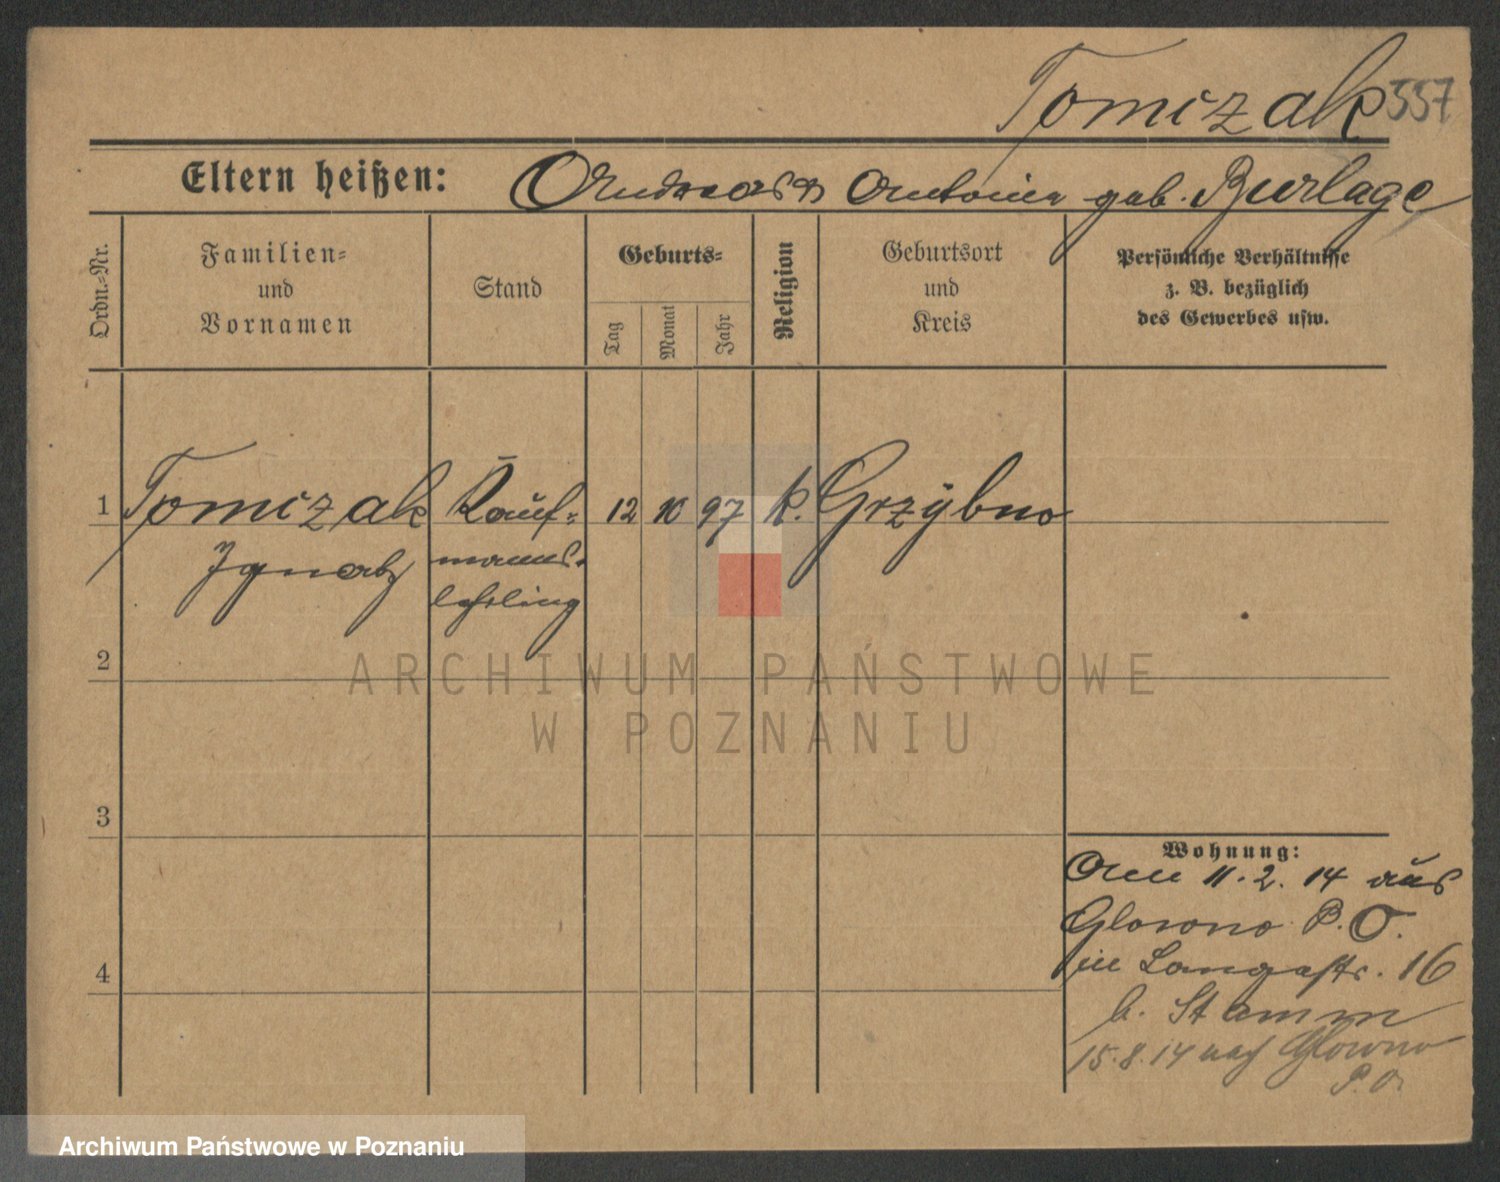 Tomczak 557
Eltern heißen: Andreas u Antonie geb. Burlage
Ordn.-Nr.
Familien-
und
Vornamen
Stand
Geburts-
Tag
Monat
Jahr
Religion
Geburtsort
und
Kreis
Persönliche Verhältnisse
z. B. bezüglich
des Gewerbes usw.
1 Tomczak Kauf- 12 10 97 k. Grzybno
Ignatz manns-
lehrling
2
ARCHIWUM PAŃSTWOWE
W POZNANIU
3
Wohnung:
Am 11.2.14 aus
Glowno P.O.
in Langestr. 16
b. Stamm
4
15.8.14 nach Glowno
P.O.
Archiwum Państwowe w Poznaniu